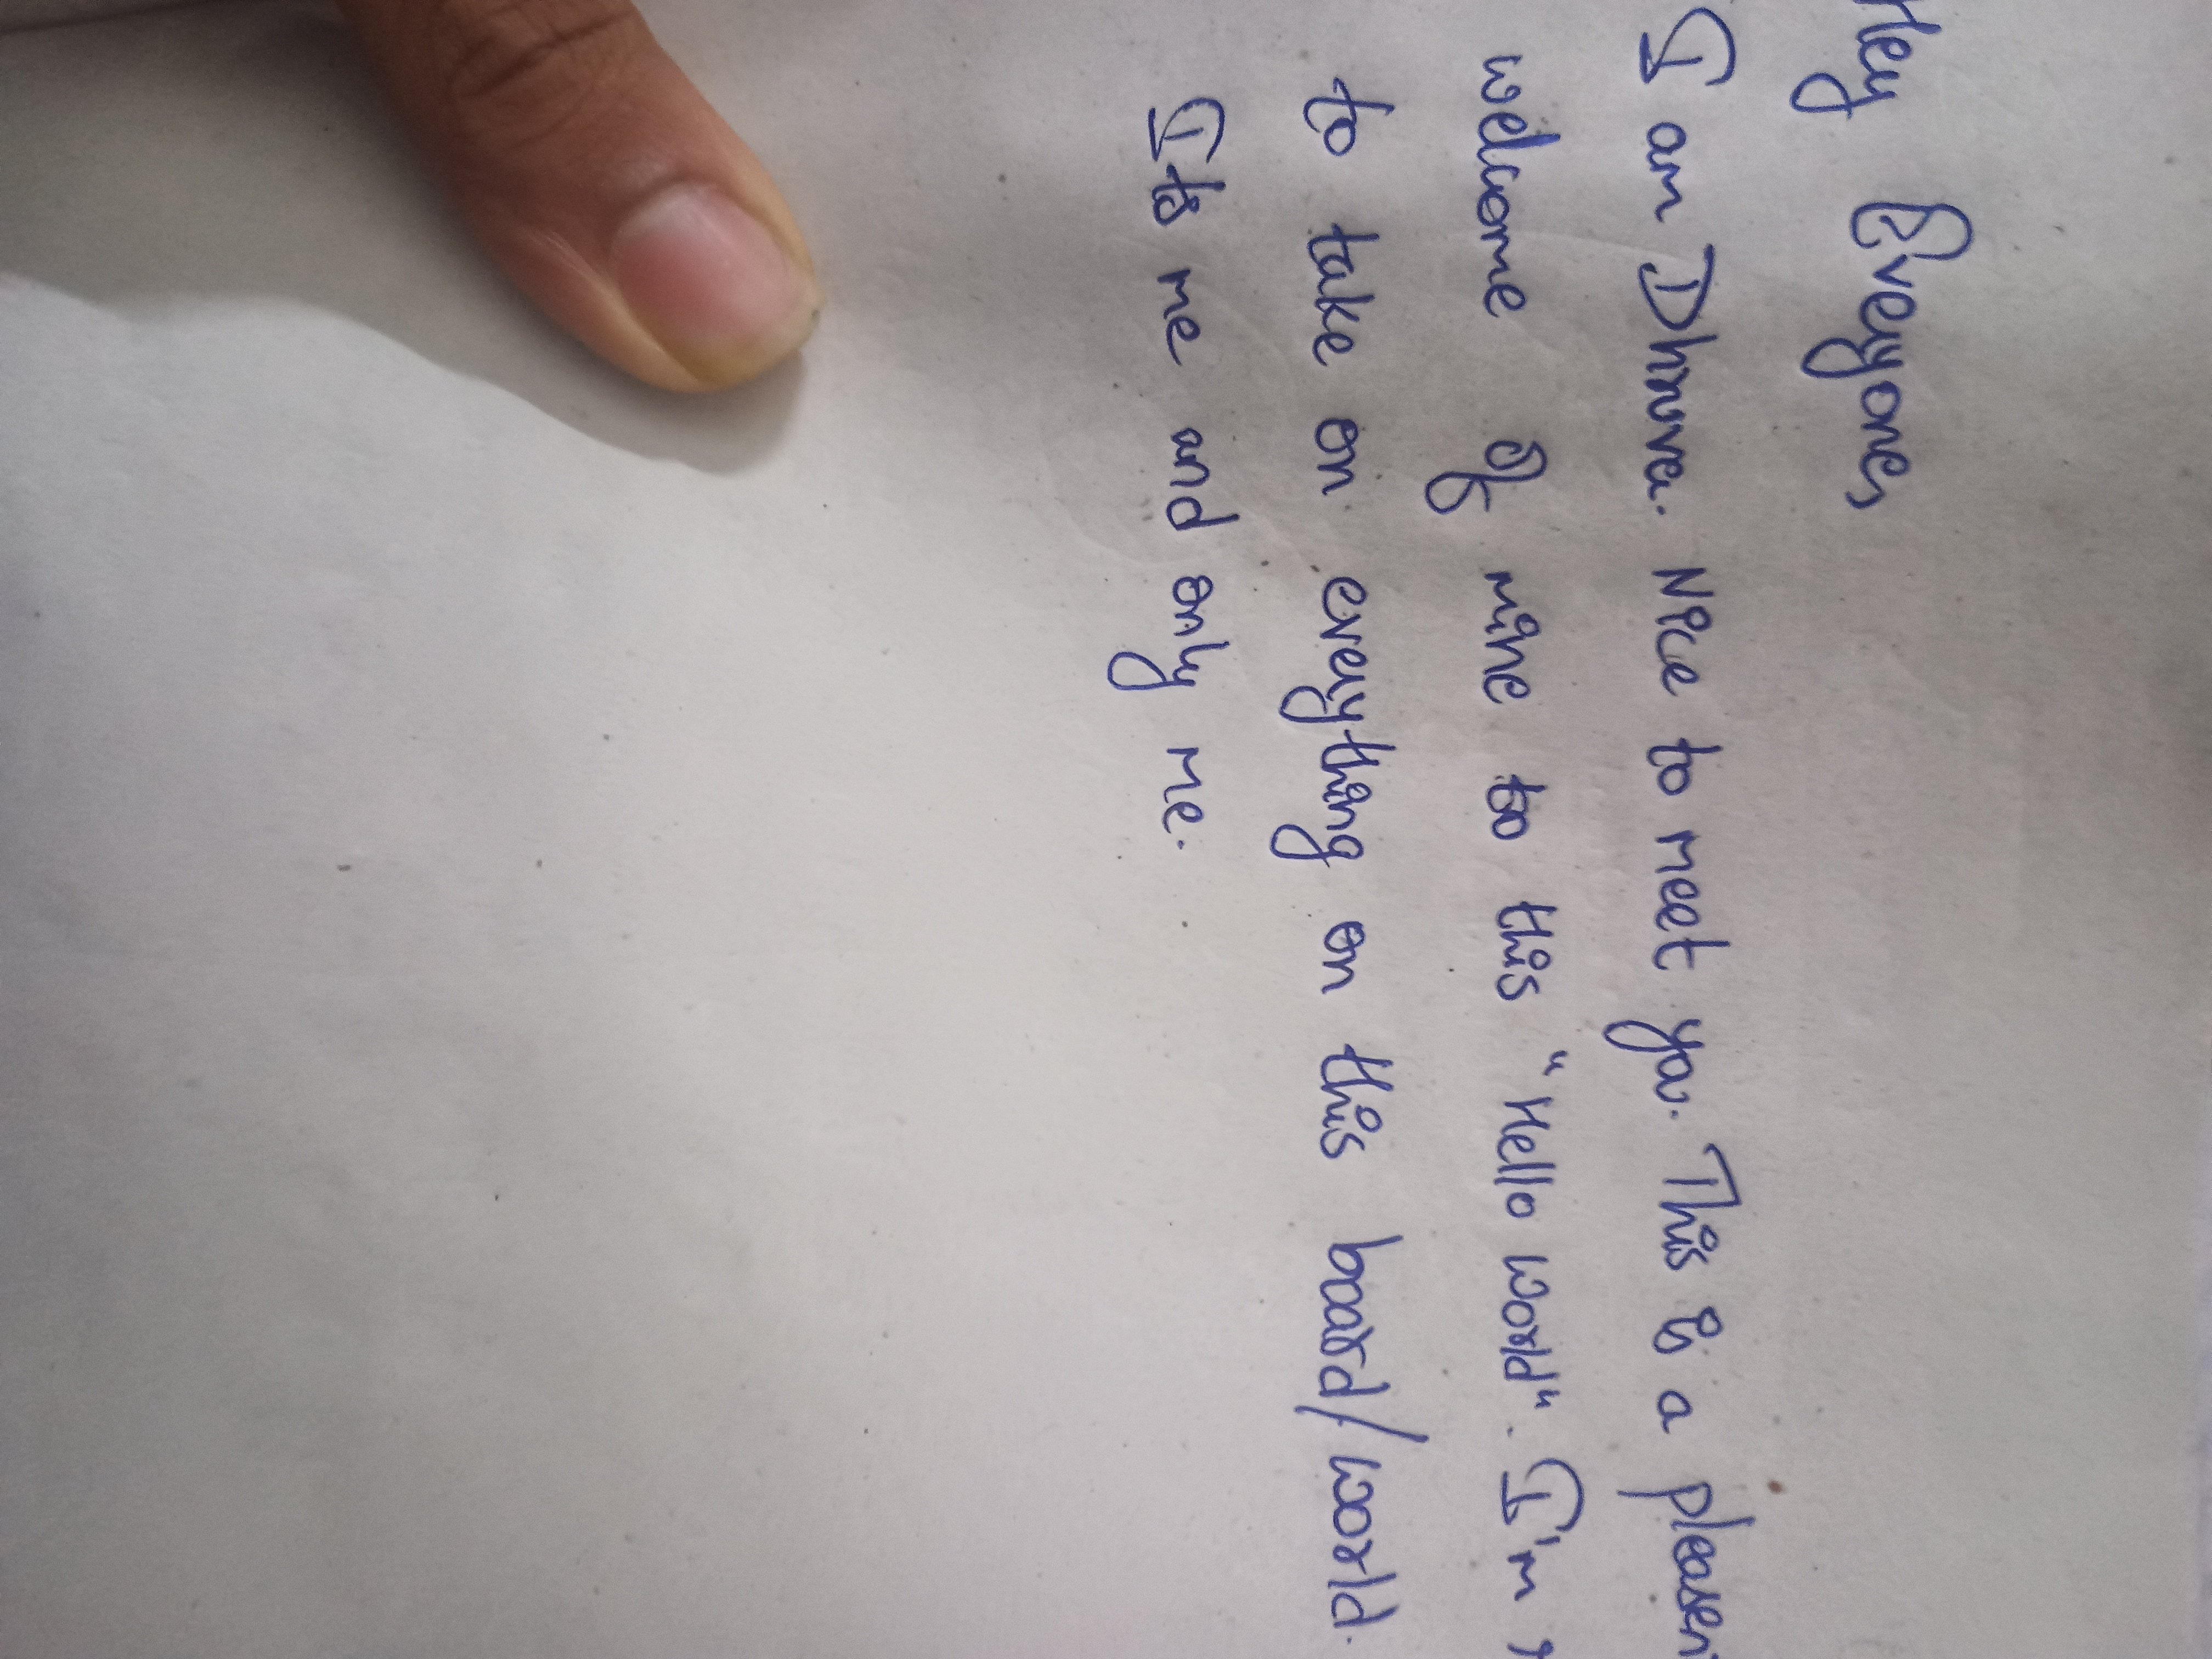 Hey Everyone,
I am Dhruva. Nice to meet you. This is a
welcome of mine to this "Hello world". I'm
to take on everything on this board/world.
Its me and only me.